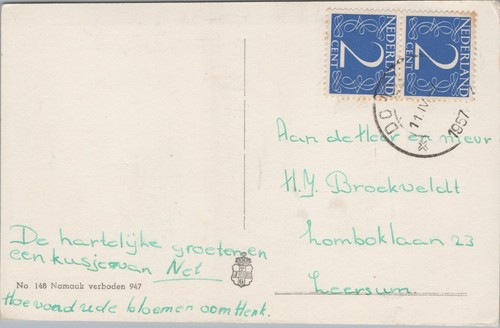 NEDERLAND
2
CENT
NEDERLAND
2
CENT
11.IV
1957
Aan de Heer en mevr
H.J. Broekveldt
Lomboklaan 23
Leersum.
De hartelijke groeten en
een kusje van Net
No. 148 Namaak verboden 947
Hoe vond u de bloemen oom Henk.